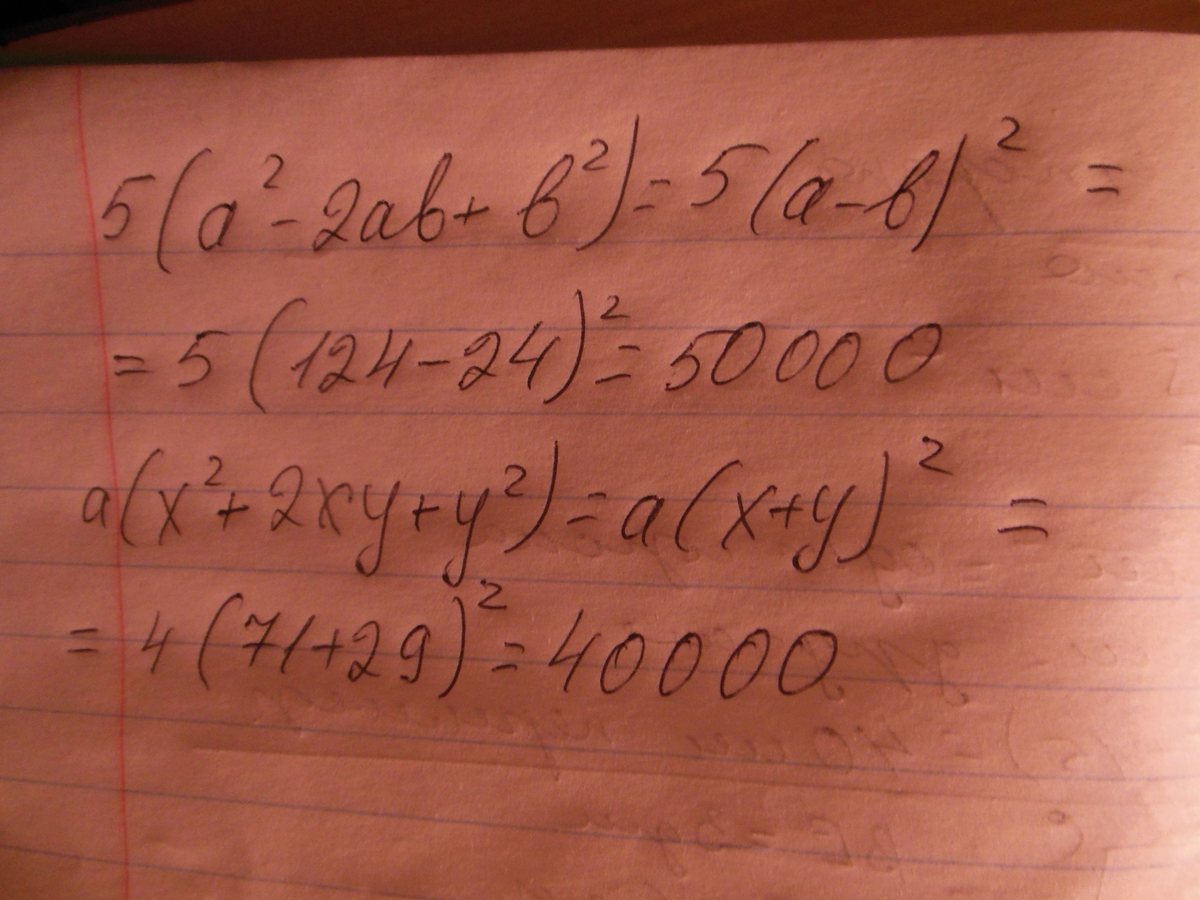 5(a²-2ab+b²)=5(a-b)²=
=5(124-24)²=50000
a(x²+2xy+y²)=a(x+y)²=
=4(71+29)²=40000